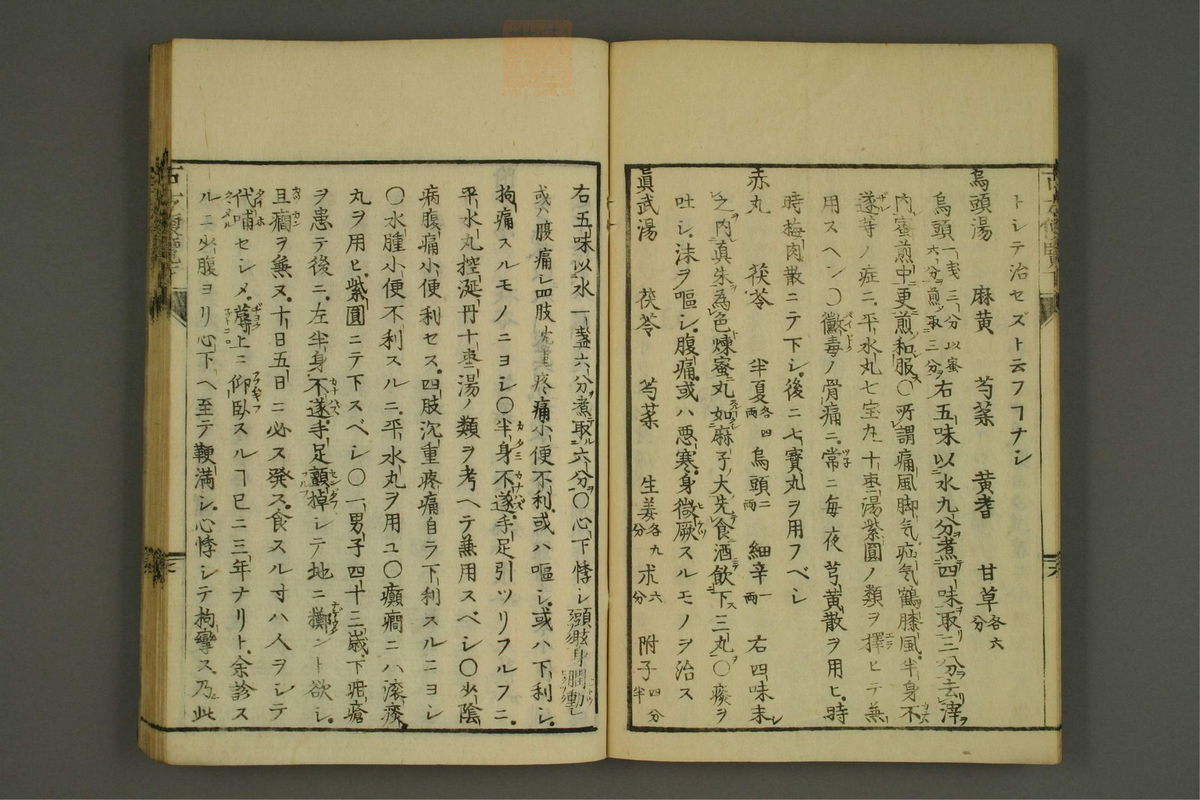 トシテ治セズト云フヿナシ
烏頭湯 麻黄 芍薬 黄耆 甘草各六分
烏頭一戋三分以蜜六分煎取三分右五味以水九分煮四味取三分去滓ヲ
内蜜煎中更煎和服〇所謂痛風脚気疝気鶴膝風半身不
遂等ノ症ニ平水丸七宝丸十棗湯紫圓ノ類ヲ擇ヒテ兼
用スヘシ〇黴毒ノ骨痛ニ常ニ毎夜芎黄散ヲ用ヒ時
時梅肉散ニテ下シ後ニ七寳丸ヲ用フベシ
赤丸 茯苓 半夏各四両 烏頭二両 細辛一両 右四味末シ
之内真朱為色煉蜜丸如麻子大先食酒飲下三丸〇痰ヲ
吐シ沫ヲ嘔シ腹痛或ハ悪寒身微厥スルモノヲ治ス
眞武湯 茯苓 芍薬 生姜各九分 朮六分 附子四分半
右五味以水一盞六分煮取六分〇心下悸シ頭眩身瞤動シ
或ハ腹痛シ四肢沈重疼痛小便不利或ハ嘔シ或ハ下利シ
拘痛スルモノニヨシ〇半身不遂手足引ツリフルフニ
平水丸控涎丹十棗湯ノ類ヲ考ヘテ兼用スベシ〇少陰
病腹痛小便利セス四肢沉重疼痛自ラ下利スルニヨシ
〇水腫小便不利スルニ平水丸ヲ用ユ〇癲癇ニハ滚痰
丸ヲ用ヒ紫圓ニテ下スベシ〇一男子四十三歳下疳瘡
ヲ患テ後ニ左半身不遂手足顫掉シテ地ニ擲ント欲シ
且癇ヲ兼ヌ十日五日ニ必ス発ス食スル寸ハ人ヲシテ
代哺セシメ蓐上ニ仰臥スルヿ已ニ三年ナリト余診ス
ルニ少腹ヨリ心下ヘ至テ鞕満シ心悸シテ拘攣ス乃此